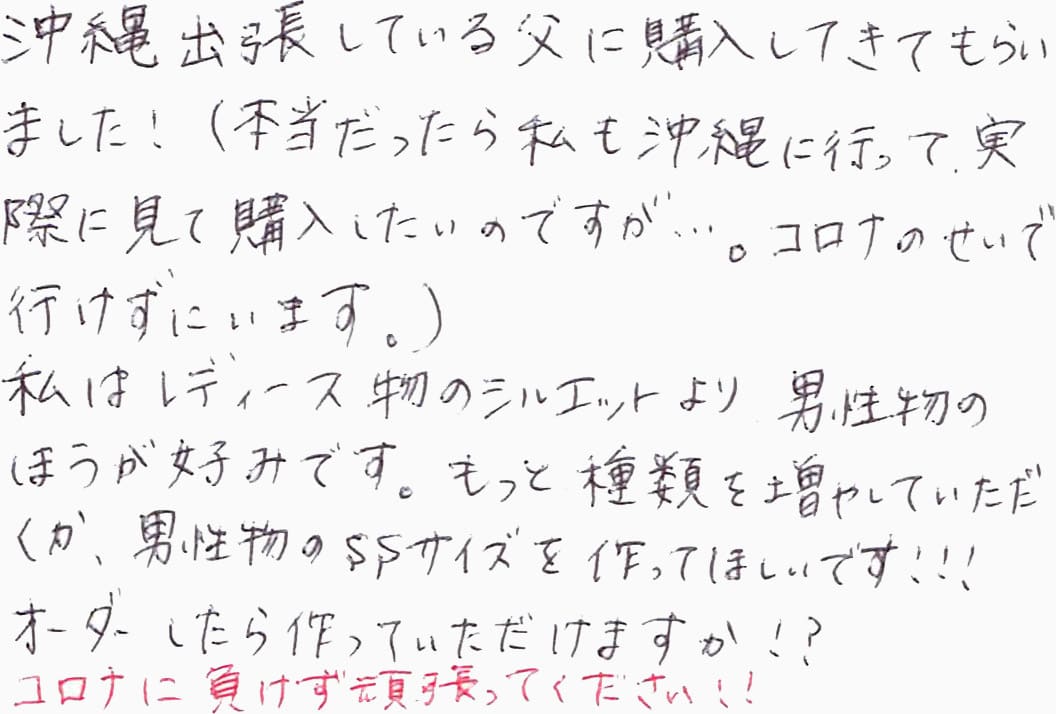 沖縄出張している父に購入してきてもらい
ました!(本当だったら私も沖縄に行って、実
際に見て購入したいのですが…。コロナのせいで
行けずにいます。)
私はレディース物のシルエットより男性物の
ほうが好みです。もっと種類を増やしていただ
くか、男性物のSSサイズを作ってほしいです!!!
オーダーしたら作っていただけますか!?
コロナに負けず頑張ってください!!